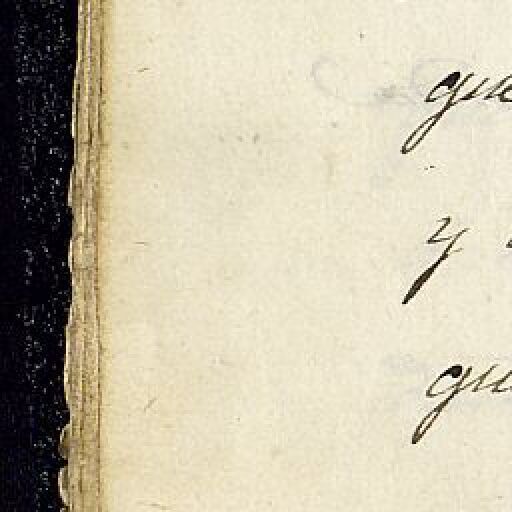 que
y
qu